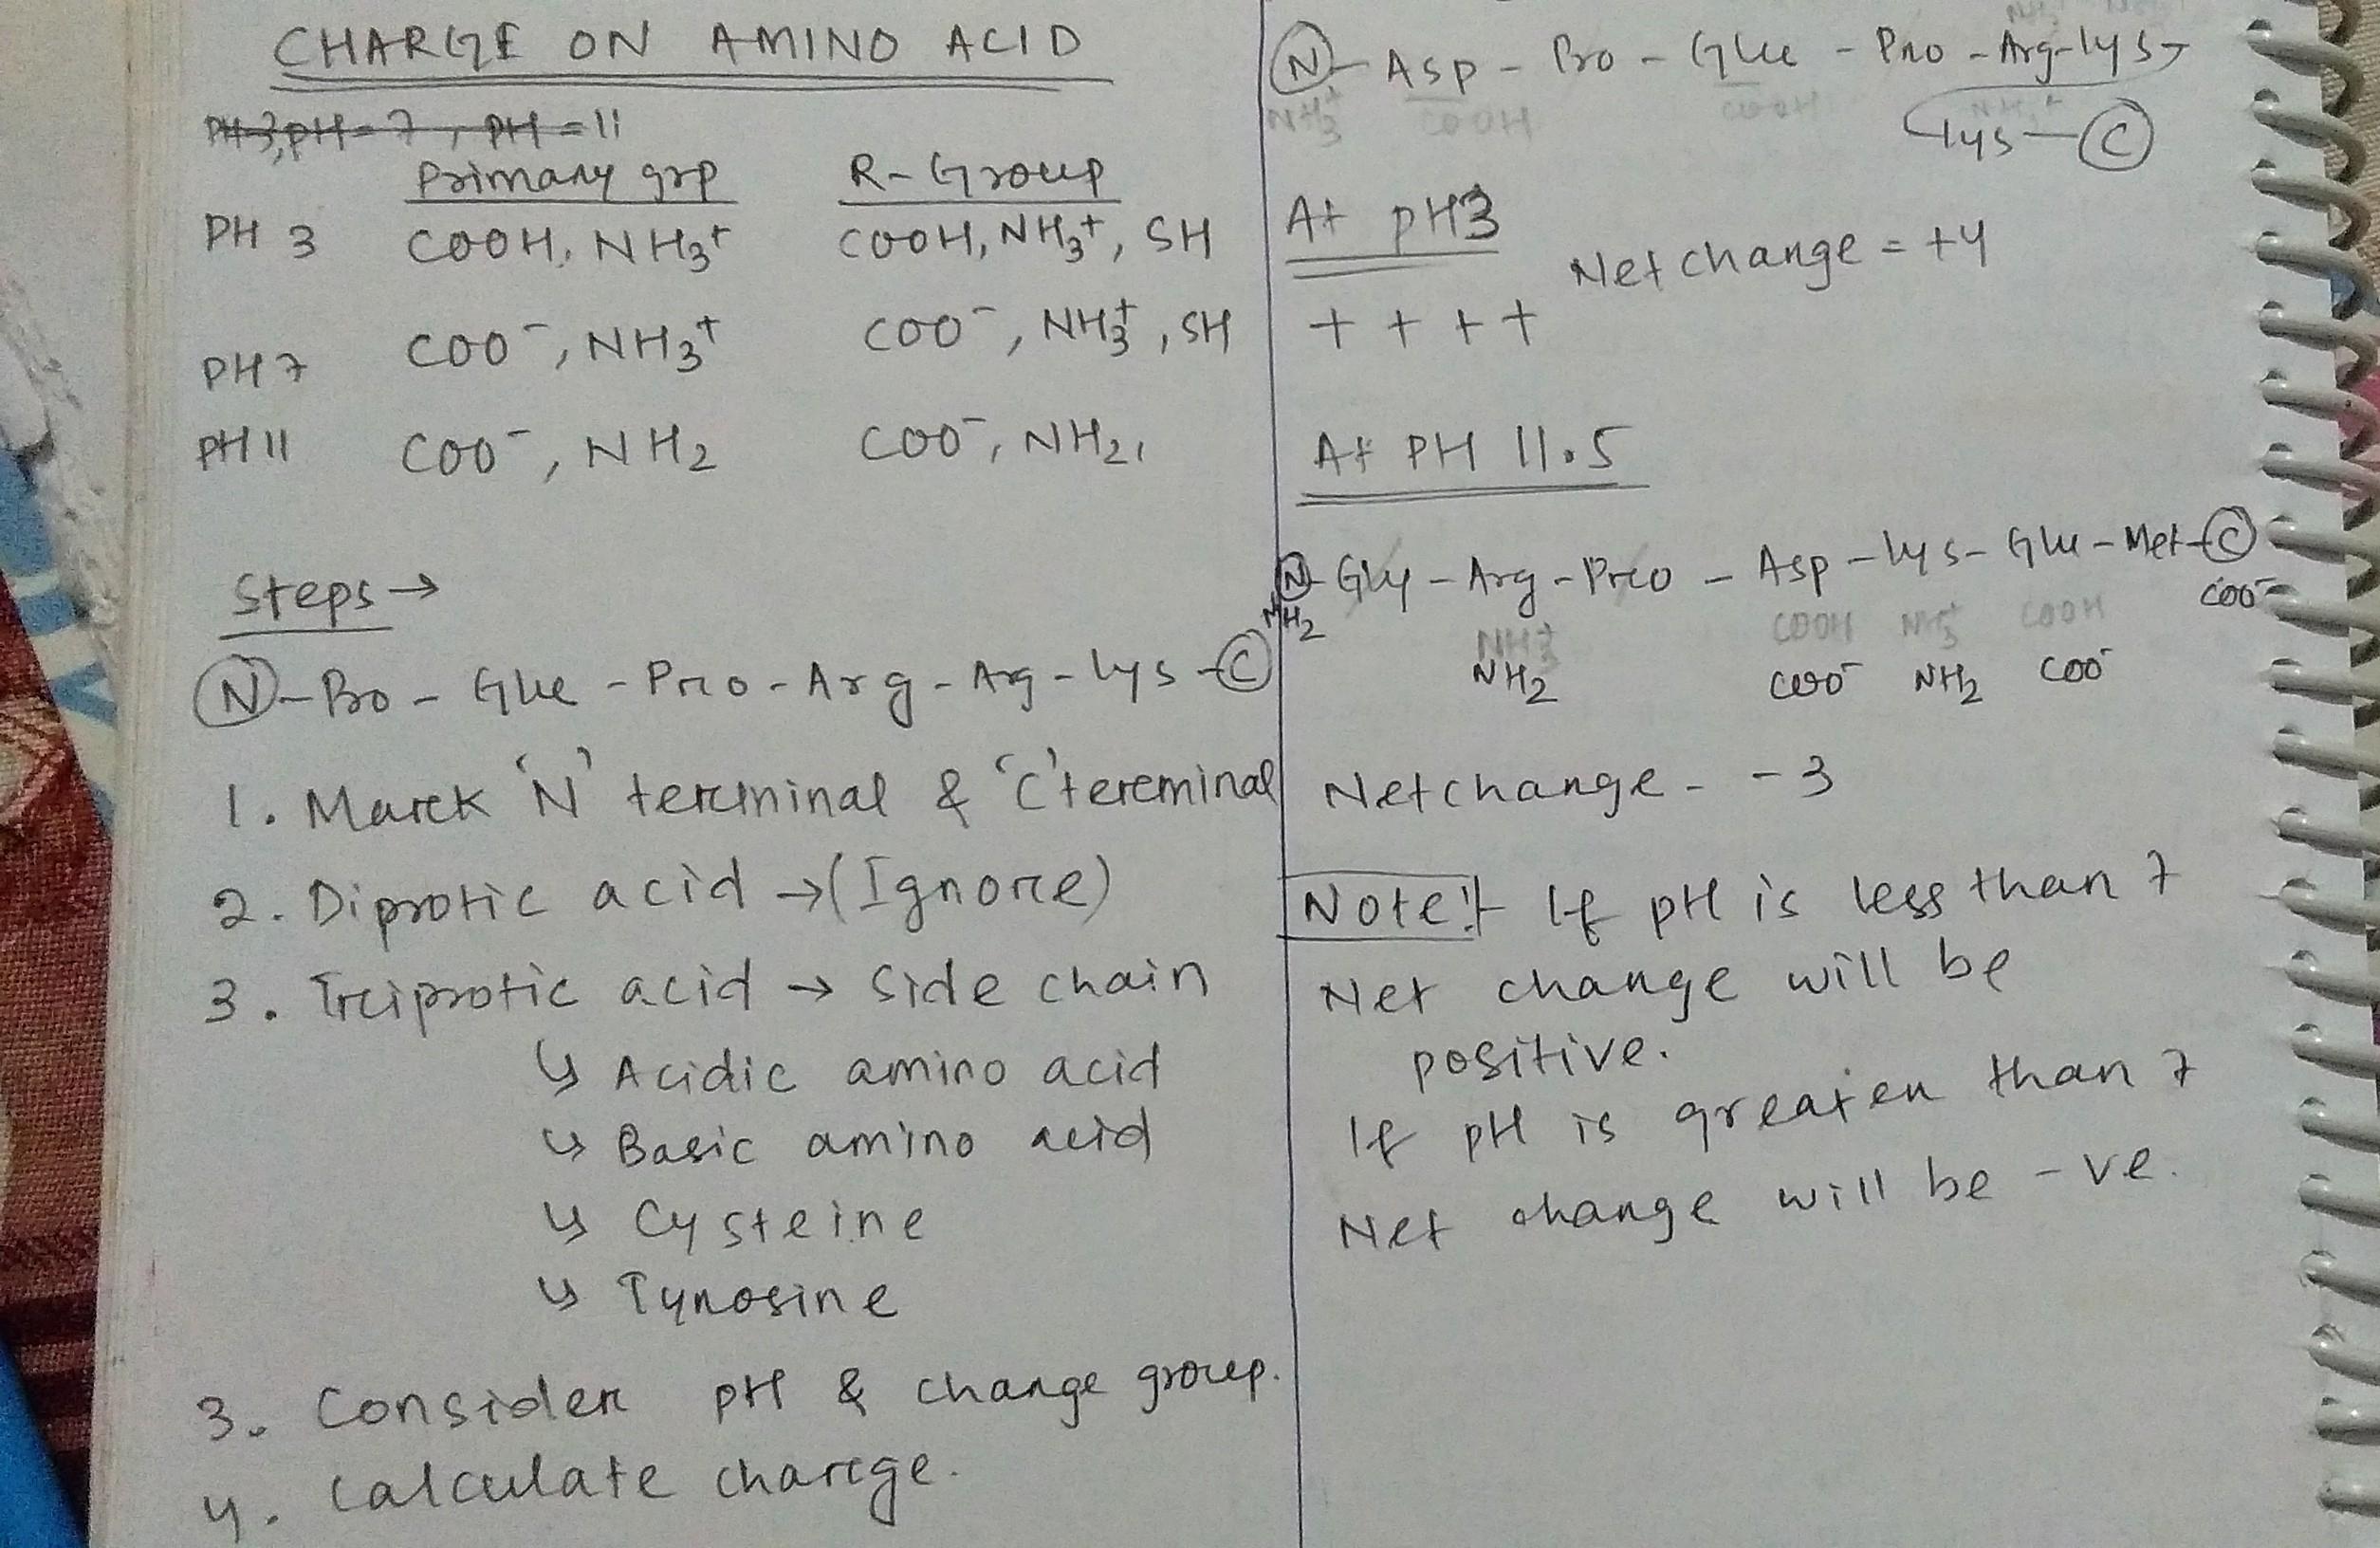 CHARGE ON AMINO ACID
PH=3, pH=7, PH=11
Primary grp R-Group
PH 3 COOH, NH3+ COOH, NH3+, SH
PH 7 COO-, NH3+ COO-, NH3+, SH
PH 11 COO-, NH2 COO-, NH2,
Steps →
N-Pro-Glu-Pro-Arg-Arg-Lys-C
1. Mark 'N' terminal & 'C' tereminal
2. Diprotic acid → (Ignore)
3. Triprotic acid → Side chain
↳ Acidic amino acid
↳ Basic amino acid
↳ Cysteine
↳ Tyrosine
3. Consider pH & change group.
4. Calculate charge.
N-Asp-Pro-Glu-Pro-Arg-Lys-
NH3+ COOH COOH NH3+
Lys-C
At pH3
Net change = +4
+ + + +
At PH 11.5
N-Gly-Arg-Pro-Asp-Lys-Glu-Met-C
NH2 COO-
NH3+ COOH NH3+ COOH
NH2 COO- NH2 COO-
Net change - -3
Note:- If pH is less than 7
Net change will be
positive.
If pH is greater than 7
Net change will be -ve.